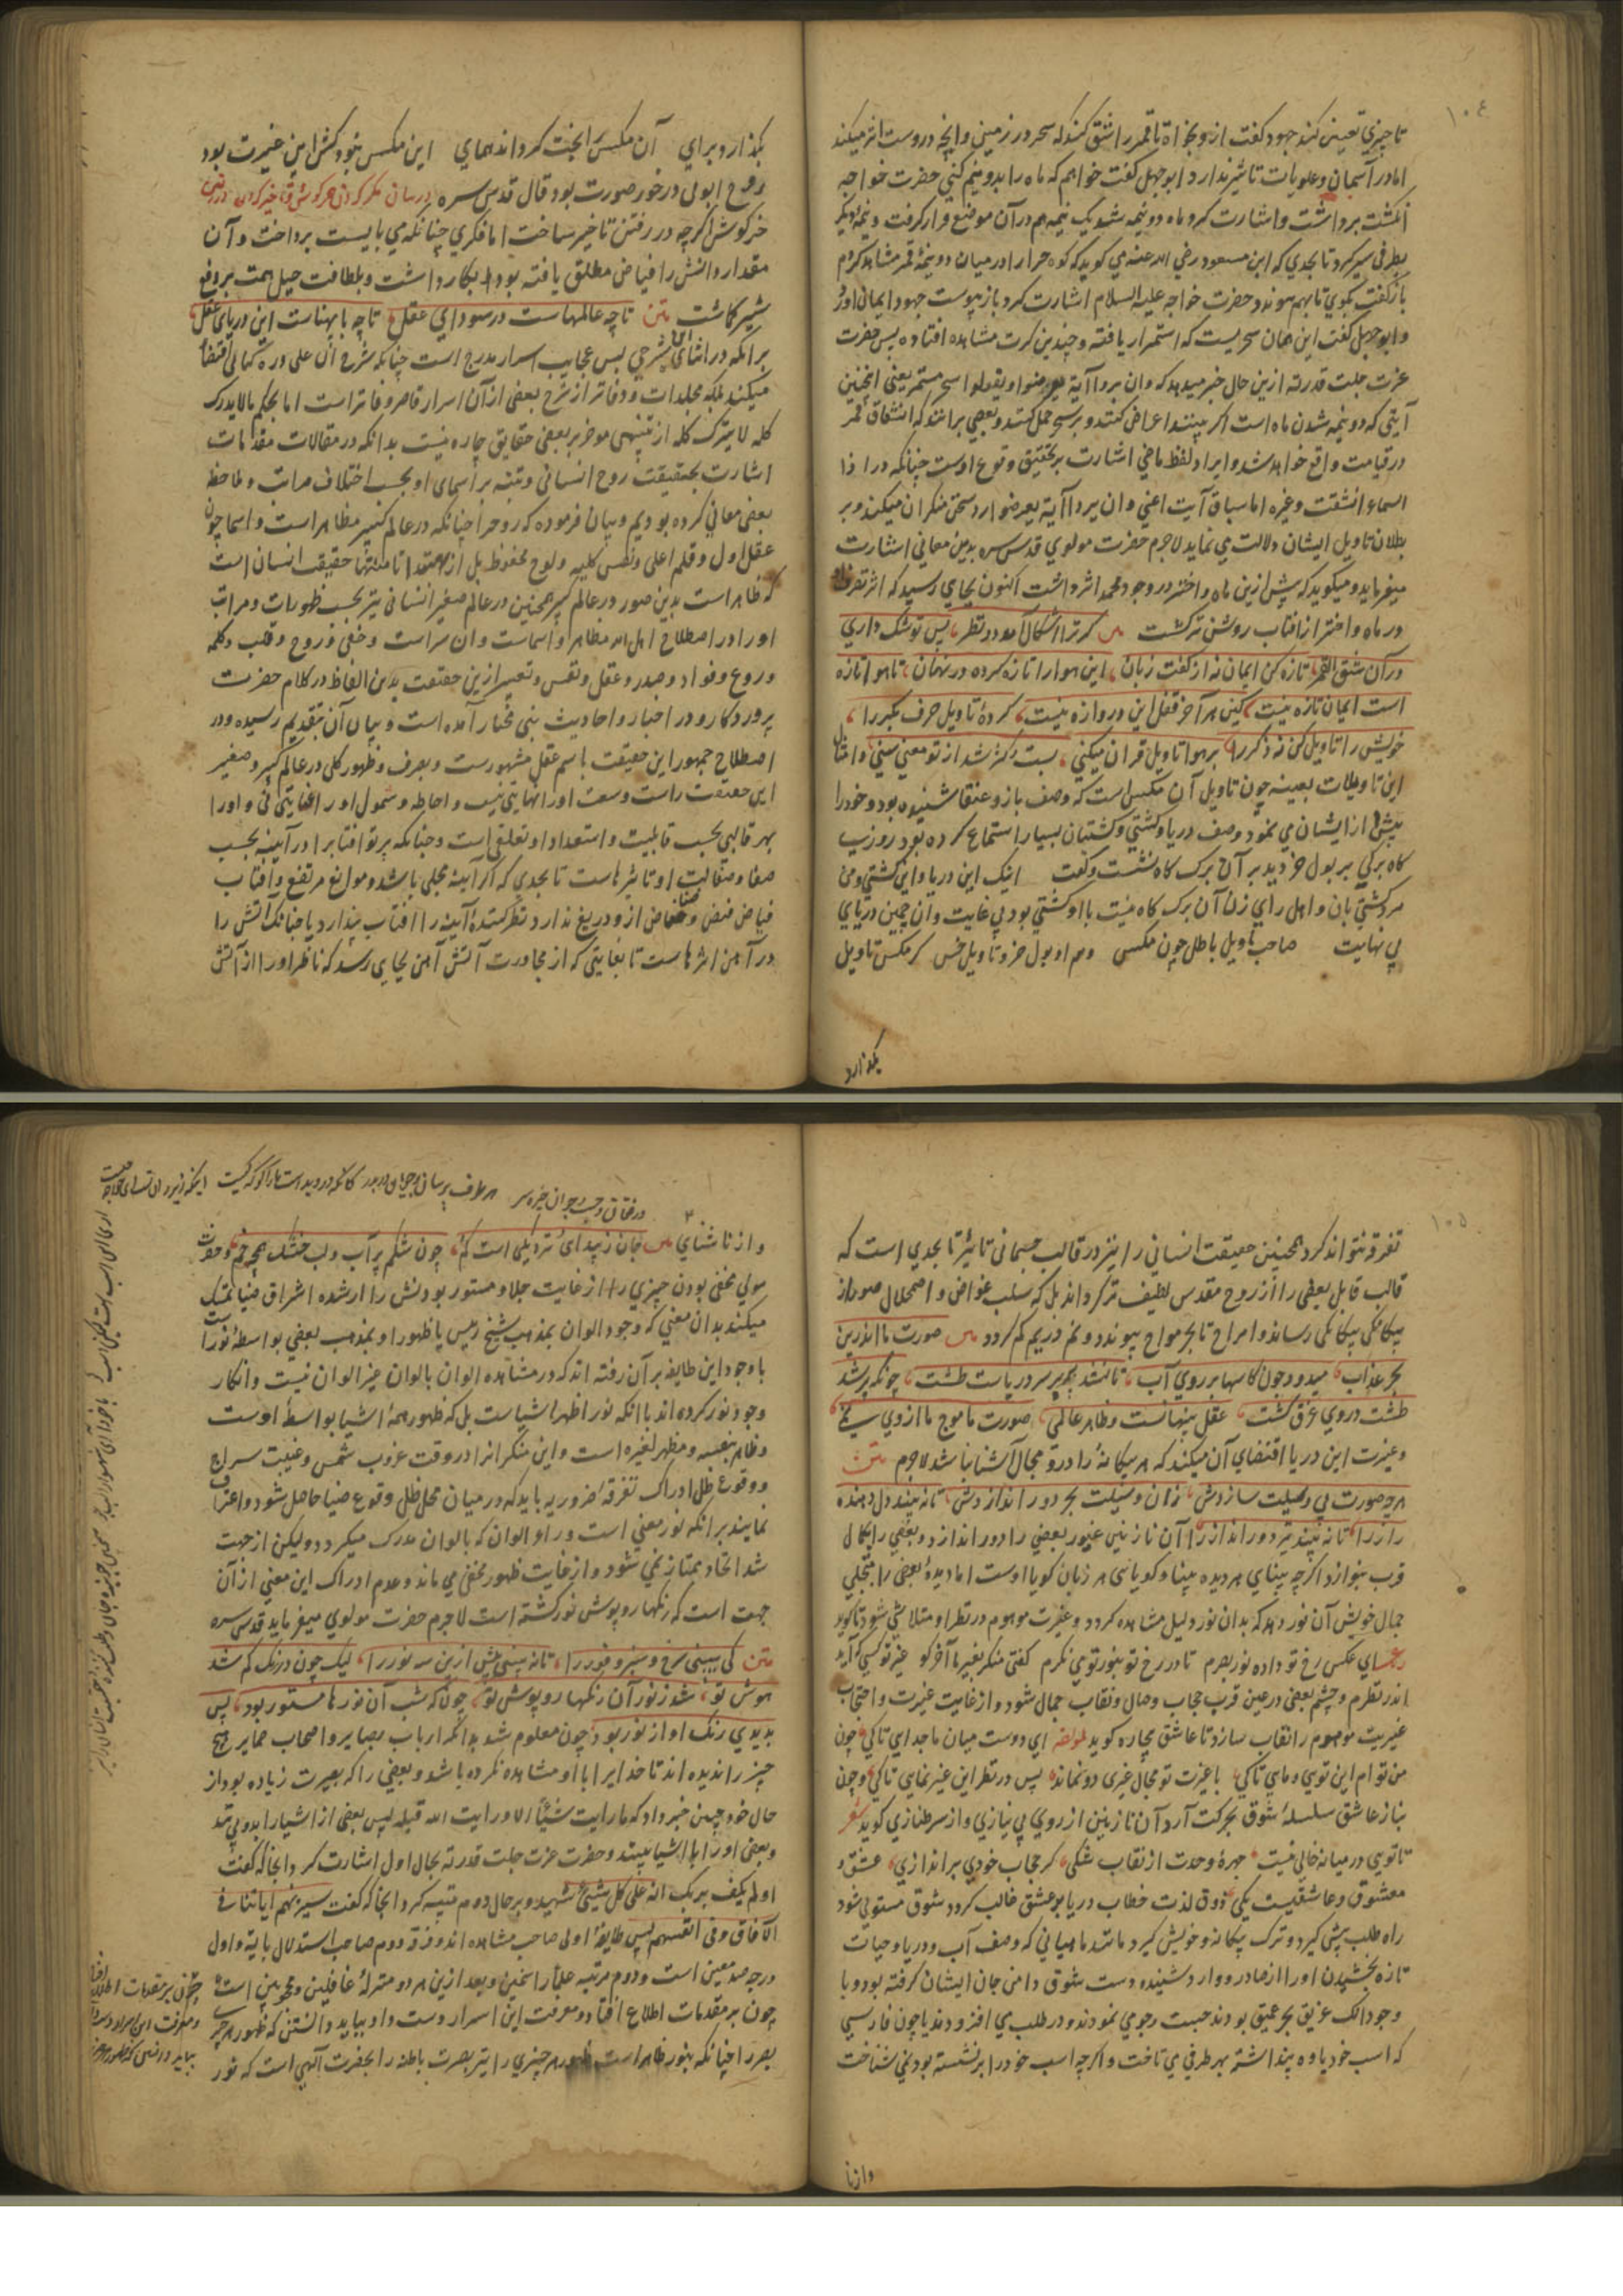 ١٠٤
تا چیزی تعیین کند جهود گفت ازو بخواه تا قمر را شق کند که سحر در زمینی و آنچه دروست اثر میکند
اما در آسمان و علویات تاثیر ندارد ابوجهل گفت خواهم که ماه را بدو نیم کنی حضرت خواجه
انگشت برداشت و اشارت کرد ماه دو نیمه شد یک نیمه هم در آن موضع قرار گرفت و نیمه دیگر
بطرفی سیر کرد تا بحدی که ابن مسعود رضی الله عنه می گوید که کوه حرا را در میان دو نیمهٔ قمر مشاهد کردم
باز گفت بگوی تا بهم پیوندد حضرت خواجه علیه السلام اشارت کرد باز پیوست جهود ایمان آورد
و ابوجهل گفت این همان سحریست که استمرار یافته و چندین کرت مشاهده افتاده پس حضرت
عزت جلت قدرته ازین حال خبر میدهد که وان یروا آیة یعرضوا و یقولوا سحر مستمر یعنی اینچنین
آیتی که دو نیمه شدن ماه است اگر ببینند اعراض کنند و بر سحر حمل کنند و بعضی برانند که انشقاق قمر
در قیامت واقع خواهد شد و ایراد لفظ ماضی اشارت بر تحقیق وقوع اوست چنانکه در اذا
السماء انشقت و غیره اما سیاق آیت اعنی وان یروا آیة یعرضوا رد سخن منکران میکند و بر
بطلان تاویل ایشان دلالت می نماید لاجرم حضرت مولوی قدس سره بدین معانی اشارت
میفرماید و میگوید که پیش ازین ماه و اختر در وجود محمد اثر داشت اکنون بجای رسید که اثر تصرف او
در ماه و اختر از آفتاب روشن تر گشت متن گر ترا اشکال آمد در نظر پس تو شک داری
در آن شق القمر تازه کن ایمان نه از گفت زبان این هوا را تازه کرده در نهان تا هوا تازه
است ایمان تازه نیست کین هوا جز قفل این دروازه نیست کردهٔ تاویل حرف بکر را
خویش را تاویل کن نه ذکر را بر هوا تاویل قرآن میکنی پست و کژ شد از تو معنی سنی و امثال
این تاویلات بعینه چون تاویل آن مگس است که وصف باز و عنقا شنیده بود و خود را
بیش از ایشان می نمود وصف دریا و کشتی و کشتیبان بسیار استماع کرده بود روزی
کاه برگی بر بول خر دید بر آن برگ کاه نشست و گفت اینک این دریا و این کشتی و من
مرد کشتیبان و اهل رای زن آن برگ کاه نیست با او کشتی بود بی غایت وان چمین دریای
بی نهایت صاحب تاویل باطل چون مگس وهم او بول خر و تاویل خس گر مگس تاویل
بگذارد
بگذارد برای آن مگس را بخت گرداند همای این مگس نبود کش این عبرت بود
روح او بی در خور صورت بود قال قدس سره
خرگوش اگرچه در رفتن تاخیر ساخت اما فکری چنانکه می بایست پرداخت و آن
مقدار دانش را فیاض مطلق یافته بود او بکار داشت و بلطافت حیل همت بر دفع
شیر گماشت متن تا چه عالمهاست در سودای عقل تا چه با پهناست این دریای عقل
بر آنکه در اثنای شرحی بس عجایب اسرار مدرج است چنانکه شرح آن علی وره کمالی اقتضا
میکند بلکه مجلدات و دفاتر از شرح بعضی از آن اسرار قاصر و فاتر است اما بحکم مالا یدرک
کله لا یترک کله از تنبیهی موجز بر بعضی حقایق چاره نیست بدانکه در مقالات مقدمات
اشارت بحقیقت روح انسانی و تنبه بر اسمای او بحسب اختلاف مراتب و ملاحظه
بعضی معانی کرده بودیم و بیان فرموده که روح را چنانکه در عالم کبیر مظاهر است و اسما چون
عقل اول و قلم اعلی و نفس کلیه و لوح محفوظ بل از مبتدا تا منتها حقیقت انسان است
که ظاهر است بدین صور در عالم کبیر همچنین در عالم صغیر انسانی نیز بحسب ظهورات و مراتب
او را در اصطلاح اهل الله مظاهر و اسماست و آن سر است و خفی و روح و قلب و کلمه
و روع و فواد و صدر و عقل و نفس و تعبیر ازین حقیقت بدین الفاظ در کلام حضرت
پروردگار و در اخبار و احادیث نبی مختار آمده است و بیان آن بتقدیم رسیده و در
اصطلاح جمهور این حقیقت باسم عقل مشهورست و بصرف و ظهور کلی در عالم کبیر و صغیر
این حقیقت راست وسعت او را نهایتی نیست و احاطه و شمول او را غایتی نی و او را
بهر قالبی بحسب قابلیت و استعداد او تعلقی است و چنانکه پرتو آفتاب را در آیینه بحسب
صفا و صقالت او تاثیرهاست تا بحدی که اگر آیینه مجلی باشد و موانع مرتفع و آفتاب
فیاض فیض و ضیا از و دریغ ندارد نظر کنندهٔ آیینه را آفتاب پندارد یا چنانکه آتش را
در آهن اثرهاست تا بغایتی که از مجاورت آتش آهن بجایی رسد که ناظر او را از آتش
١٠٥
تفرقه نتواند کرد همچنین حقیقت انسانی را نیز در قالب جسمانی تاثیر تا بحدی است که
قالب قابل بعضی را از روح مقدس لطیف تر گرداند بل که بسلب عوارض و اضمحلال صور از
بیگانگی بیگانگی رساند و امواج تا بحر مواج پیوندد و نم در یم گم گردد متن صورت ما اندرین
بحر عذاب میدود چون کاسها بر روی آب تا نشد پر بر سر دریاست طشت چونکه پر شد
طشت در وی غرق گشت عقل پنهانست و ظاهر عالمی صورت ما موج ما از وی نمی
و غیرت این دریا اقتضای آن میکند که هر بیگانه را درو مجال آشنا نباشد لاجرم متن
هر چه صورت می وسیلت سازدش زان وسیلت بحر دور اندازدش تا نه بیند دل دهندهٔ
راز را تا نه بیند تیر دور انداز را آن نازنین غیور بعضی را دور اندازد و بعضی را بکمال
قرب بنوازد اگرچه بینای هر دیده بینا و گویای هر زبان گویا اوست اما دیدهٔ بعضی را بتجلی
جمال خویش آن نور دهد که بدان نور دلیل مشاهده گردد و غیرت موهوم در نظر او متلاشی شود تا گوید
ای عکس رخ تو داده نور بصرم تا در رخ تو بنور تو می نگرم گفتی منگر بغیر ما آخر کو غیر تو کسی که آید
اندر نظرم و چشم بعضی در عین قرب حجاب وصال و نقاب جمال شود و از غایت غیرت و احتجاب
غیریت موهوم را نقاب سازد تا عاشق بیچاره گوید لمؤلفه ای دوست میان ما جدایی تا کی چون
من توام این توی و مای تا کی با غیرت تو مجال غیری چو نماند پس در نظر این غیر نمایی تا کی و چون
نیاز عاشق سلسلهٔ شوق بحرکت آرد آن نازنین از روی بی نیازی و از سر طنازی گوید شعر
تا توی در میانه خالی نیست چهرهٔ وحدت از نقاب شکی گر حجاب خودی بر اندازی عشق و
معشوق و عاشقیست یکی ذوق لذت خطاب دریا بد عشق غالب گردد شوق مستولی شود
راه طلب پیش گیرد و ترک بیگانه و خویش گیرد مانند ماهیانی که وصف آب و دریا و حیات
تازه بخشیدن او را از صادر و وارد شنیده دست شوق دامن جان ایشان گرفته بود و با
وجود آنک غریق بحر عمیق بودند جست و جوی نمودند و در طلب می افزودند یا چون فارسی
که اسب خود یاوه پنداشته بهر طرفی می تاخت و اگرچه اسب خود را بر نشسته بود نمی شناخت
واز نا
و از ناشناسی متن جان ز پیدایی و نزدیکی است گم چون شکم پر آب و لب خشک همچو خم و حضرت
مولوی مخفی بودن چیزی را از غایت جلا و مستور بودنش را از شده اشراق ضیا تمسک
میکند بدان معنی که وجود الوان بمذهب شیخ رییس یا ظهور او بمذهب بعضی بواسطهٔ نورست
با وجود این طایفه بر آن رفته اند که در مشاهده الوان بالوان غیر الوان نیست و انکار
وجود نور کرده اند با آنکه نور اظهر اشیاست بل که ظهور همهٔ اشیا بواسطهٔ اوست
و ظاهر بنفسه و مظهر لغیره است و این منکران را در وقت غروب شمس و غیبت سراج
و وقوع ظل ادراک تفرقهٔ ضروریه باید که در میان محل ظل و وقوع ضیا حاصل شود و اعتراف
نمایند بر آنکه نور معنی است ورای الوان که بالوان مدرک میگردد و لیکن از جهت
شد اتحاد ممتاز نمی شود و از غایت ظهور مخفی می ماند و عدم ادراک این معنی از آن
جهت است که رنگها روپوش نور گشته است لاجرم حضرت مولوی میفرماید قدس سره
متن کی ببینی سرخ و سبز و فور را تا نه بینی پیش ازین سه نور را لیک چون در رنگ گم شد
هوش تو شد ز نور آن رنگها روپوش تو چونکه شب آن نورها مستور بود پس
بدیدی رنگ او از نور بود چون معلوم شد بدانکه ارباب بصایر و اصحاب ضمایر هیچ
چیز را ندیده اند تا خدای را با او مشاهده نکرده باشد و بعضی را که بصیرت زیاده بود از
حال خود چنین خبر داد که ما رایت شیئا الا و رایت الله قبله پس بعضی از اشیا را بدو بینند
و بعضی او را با اشیا بینند و حضرت عزت جلت قدرته بحال اول اشارت کرد آنجا که گفت
اولم یکف بربک انه علی کل شیئ شهید و بر حال دوم تنبیه کرد آنجا که گفت سنریهم آیاتنا فی
الآفاق و فی انفسهم پس طایفهٔ اولی صاحب مشاهده اند و فرقه دوم صاحب استدلال بآیه و اول
درجه صدیقین است و دوم مرتبه علماء راسخین و بعد ازین هر دو منزلهٔ غافلین و محجوبین است
چون بر مقدمات اطلاع افتاد و معرفت این اسرار دست داد بباید دانستن که ظهور هر چیز
بصر را چنانکه بنور ظاهر است ظهور هر چیزی را نیز بصیرت باطنه را بحضرت آلهی است که نور